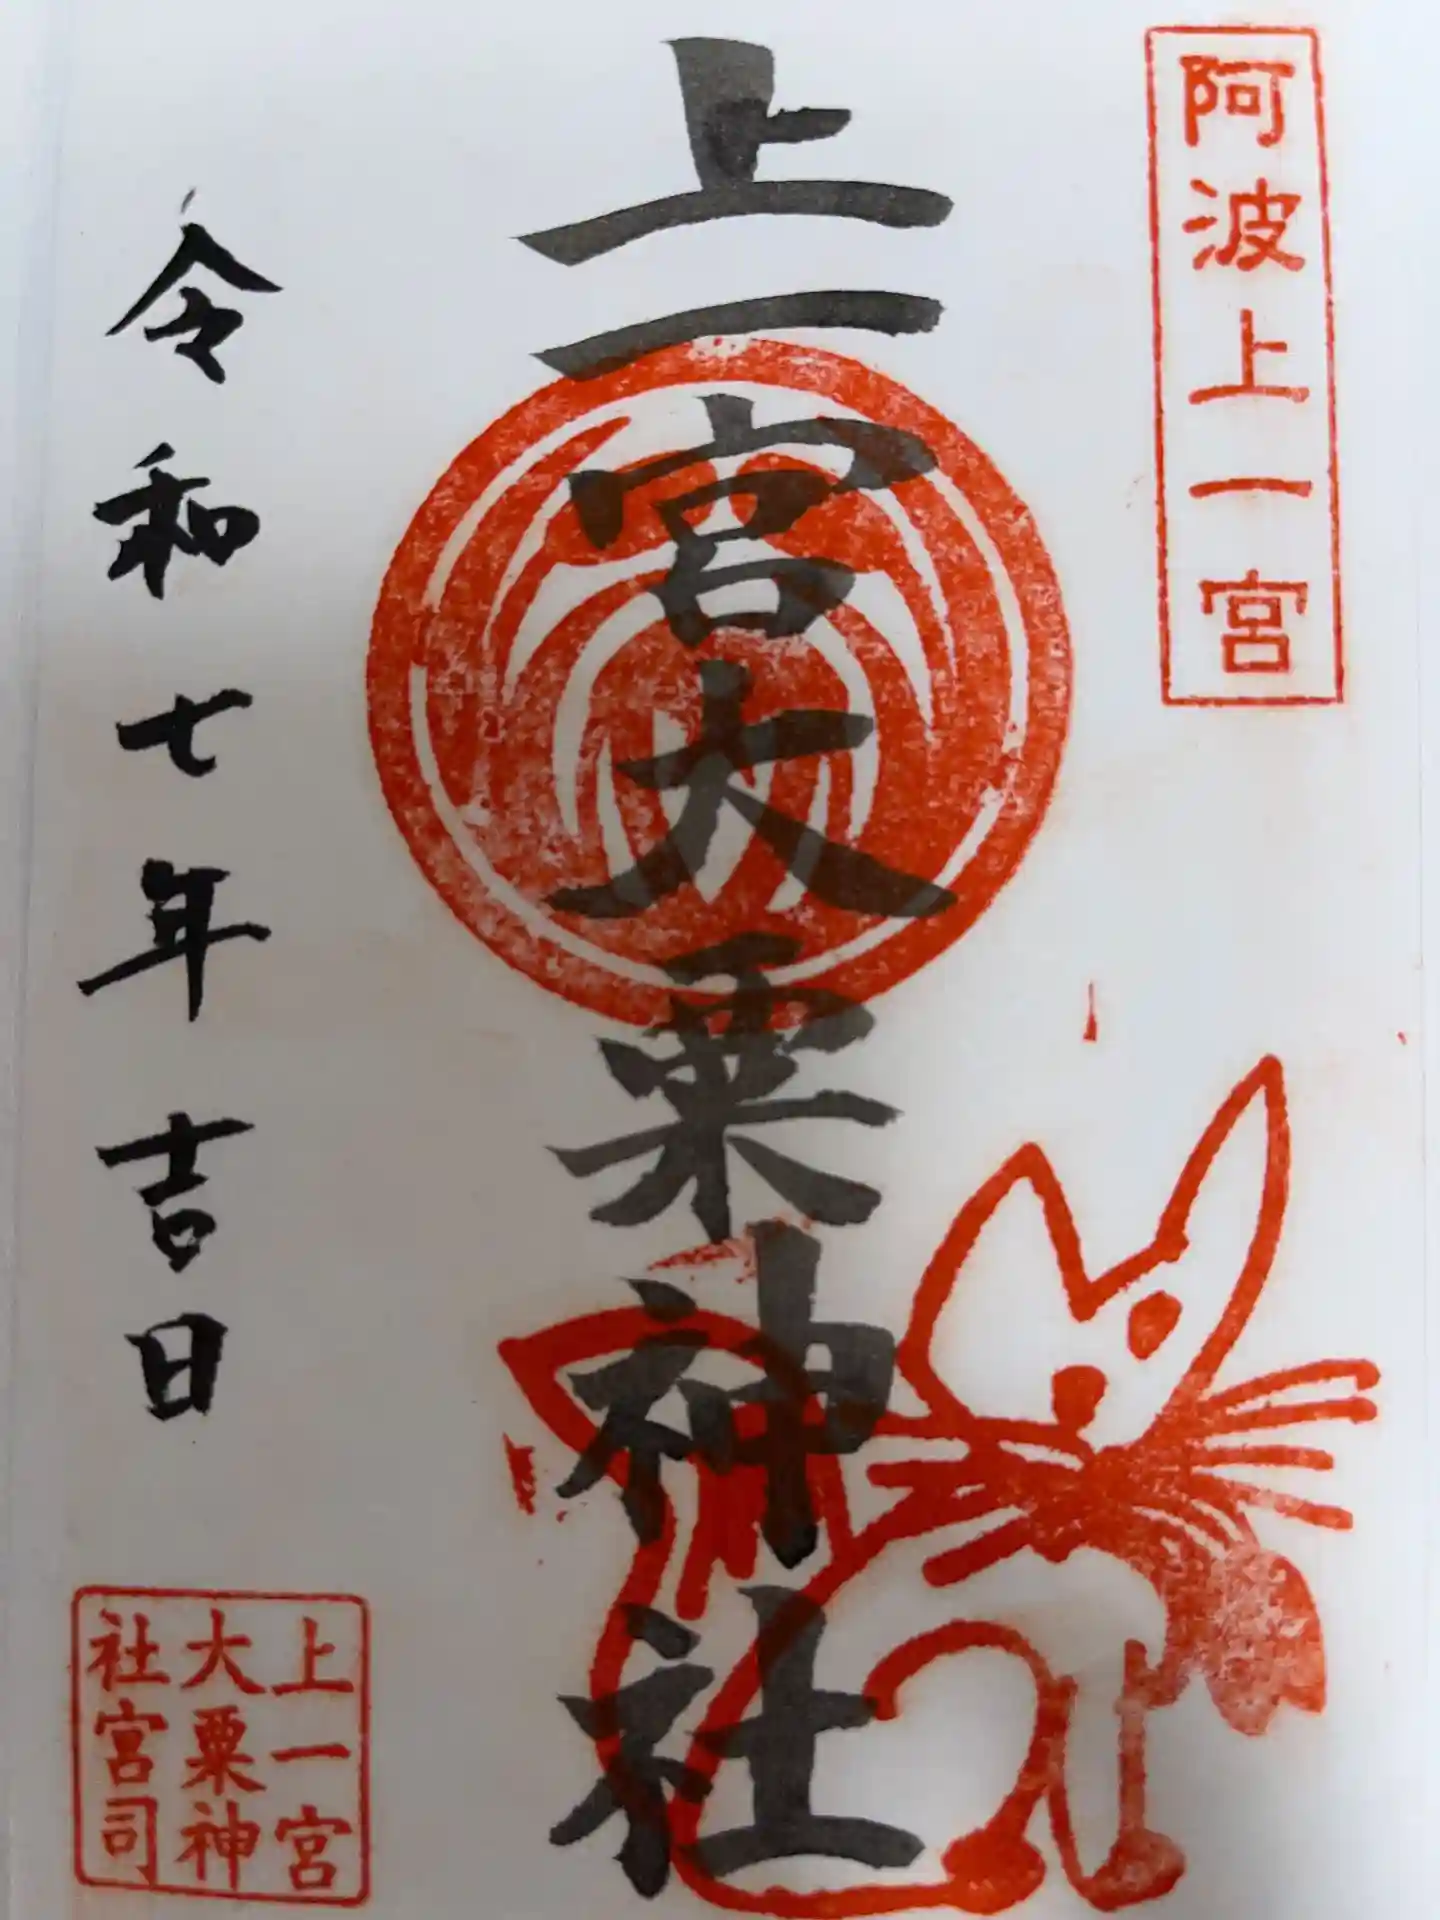 阿波上一宮
上一宮大粟神社
令和七年吉日
上一宮
大粟神
社宮司